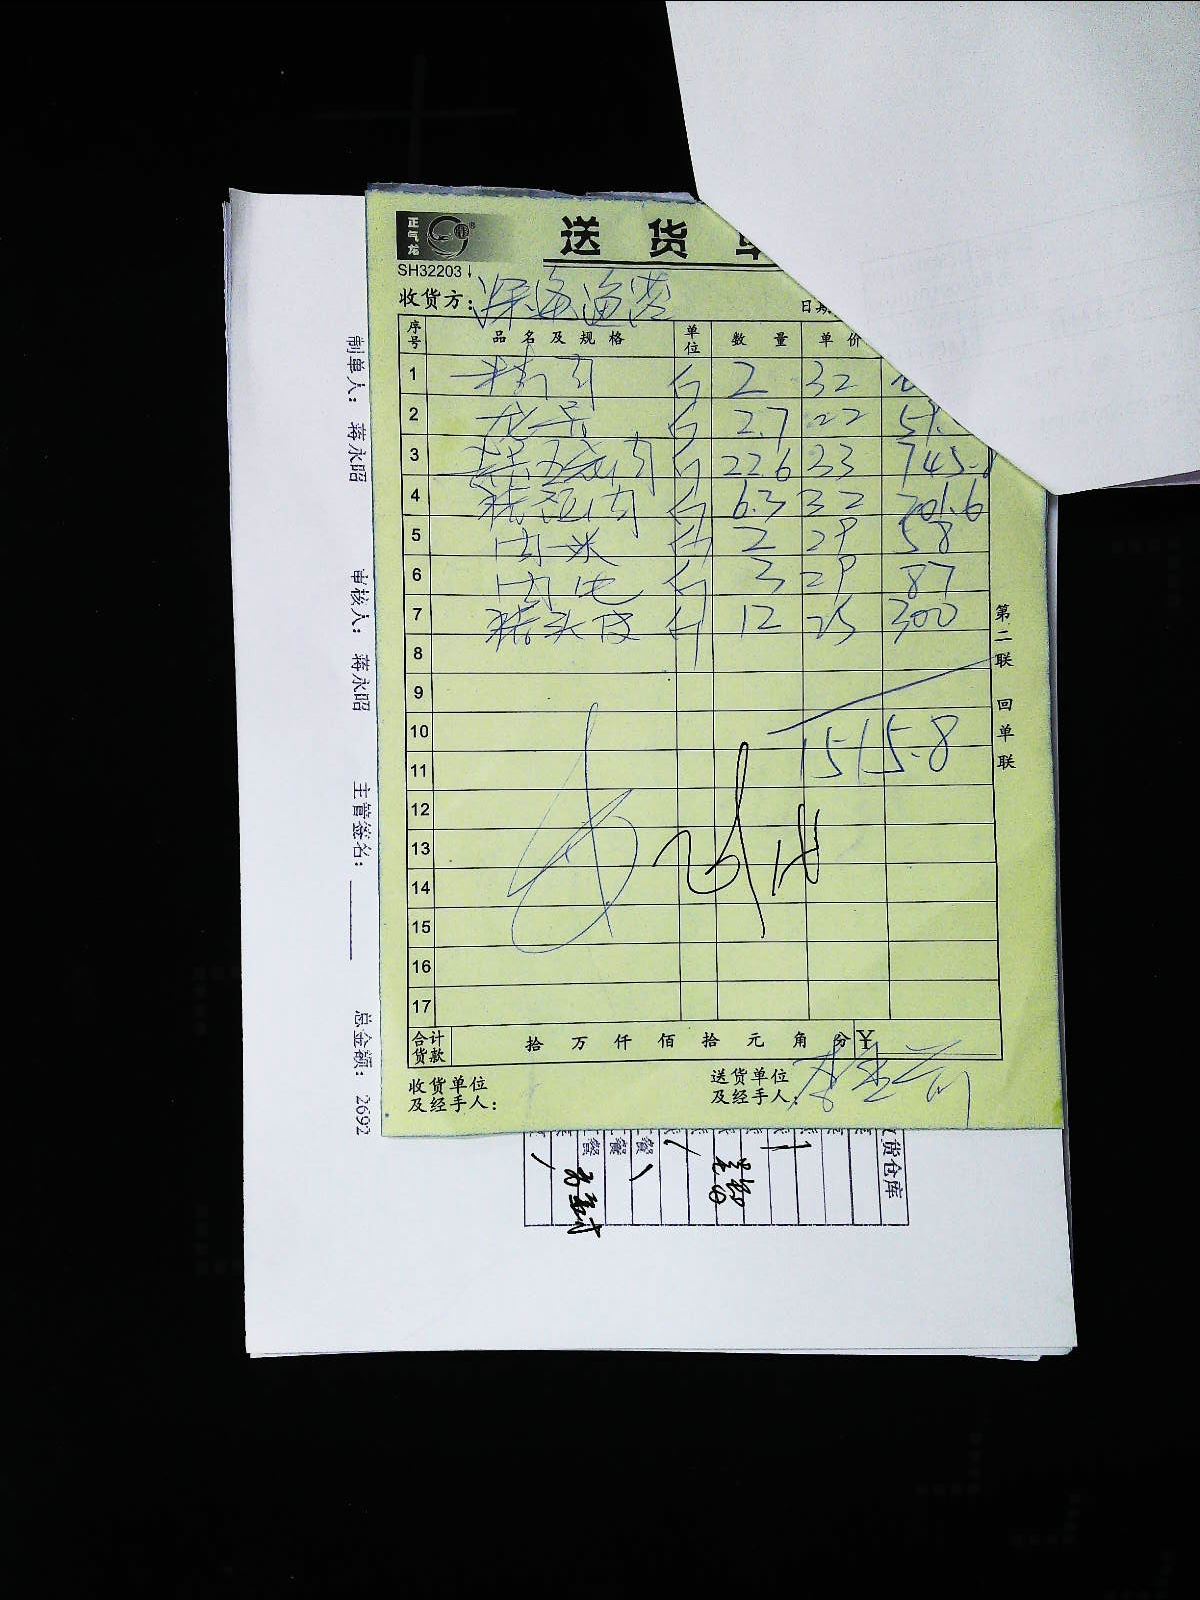 正气龙
送 货
SH32203↓
收货方：深海渔港
日期
序号 品名及规格 单位 数量 单价
1 精肉 斤 2 32
2 龙骨 斤 2.7 22 59.
3 五花肉 斤 22.6 33 745.8
4 斤 6.3 32 201.6
5 肉米 斤 2 29 58
6 肉 斤 3 29 87
7 猪头皮 斤 12 25 300
8
9
10
11
1515.8
12
13
14
15
16
17
合计货款 拾 万 仟 佰 拾 元 角 分 ￥
收货单位及经手人：
送货单位及经手人：
第二联 回单联
制单人： 蒋永昭 审核人： 蒋永昭 主管签名： 总金额： 2692
货仓库
餐
餐
餐